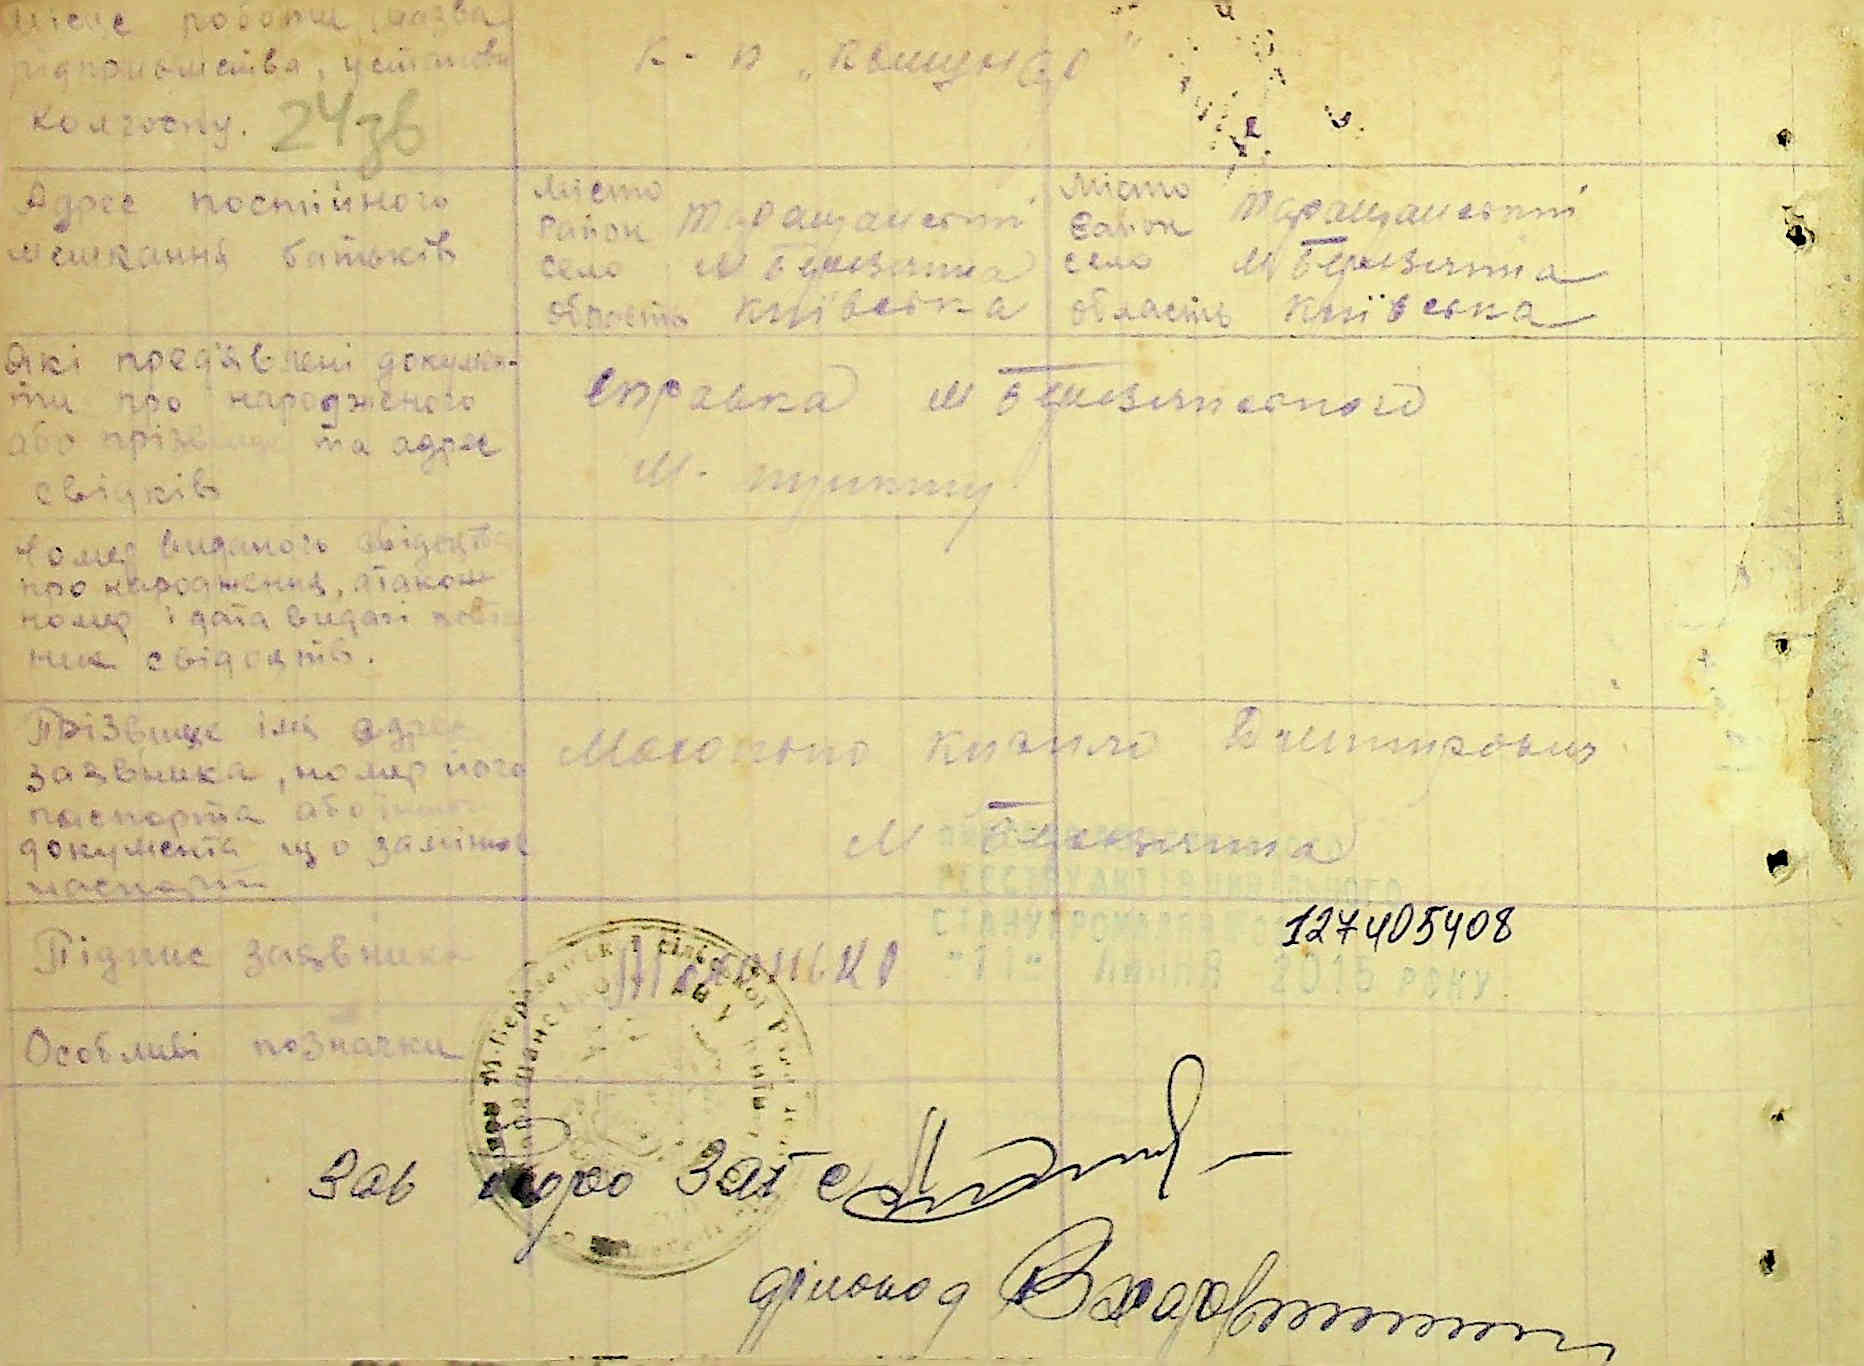 місце роботи (назва
підприємства, установи
колгоспу. 24зв
к-п „Комунар"
Адрес постійного
мешкання батьків
місто
район Таращанський
село М Березянка
область Київська
місто
район Таращанський
село М Березянка
область Київська
Які пред'явлені докумен-
ти про народженого
або прізвище та адрес
свідків
Справка М Березянського
М.
Номер виданого свідоцтва
про народження, а також
номер і дата видачі повто
них свідоцтв.
Прізвище імя адрес
заявника, номер його
паспорта або іншого
документа що замінює
паспорт
Кирило Дмитрович
М Березянка
РЕЄСТРУ АКТІВ ЦИВІЛЬНОГО
СТАНУ ГРОМАДЯН
127405408
"11" ЛИПНЯ 2015 РОКУ
Підпис заявника
Особливі позначки
Зав бюро Загс
діловод